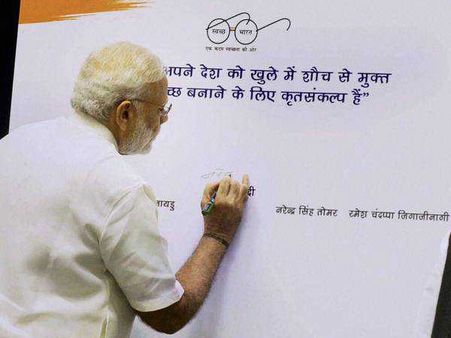 स्वच्छ भारत
एक कदम स्वच्छता की ओर
अपने देश को खुले में शौच से मुक्त
बनाने के लिए कृतसंकल्प हैं”
नरेन्द्र सिंह तोमर रमेश चंदप्पा जिगाजीनागी